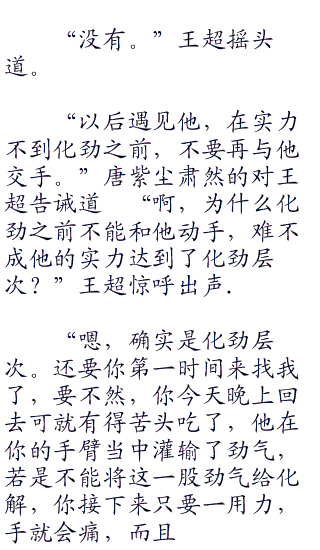 “没有。”王超摇头
道。
“以后遇见他，在实力
不到化劲之前，不要再与他
交手。”唐紫尘肃然的对王
超告诫道　“啊，为什么化
劲之前不能和他动手，难不
成他的实力达到了化劲层
次？”王超惊呼出声.
“嗯，确实是化劲层
次。还要你第一时间来找我
了，要不然，你今天晚上回
去可就有得苦头吃了，他在
你的手臂当中灌输了劲气，
若是不能将这一股劲气给化
解，你接下来只要一用力，
手就会痛，而且